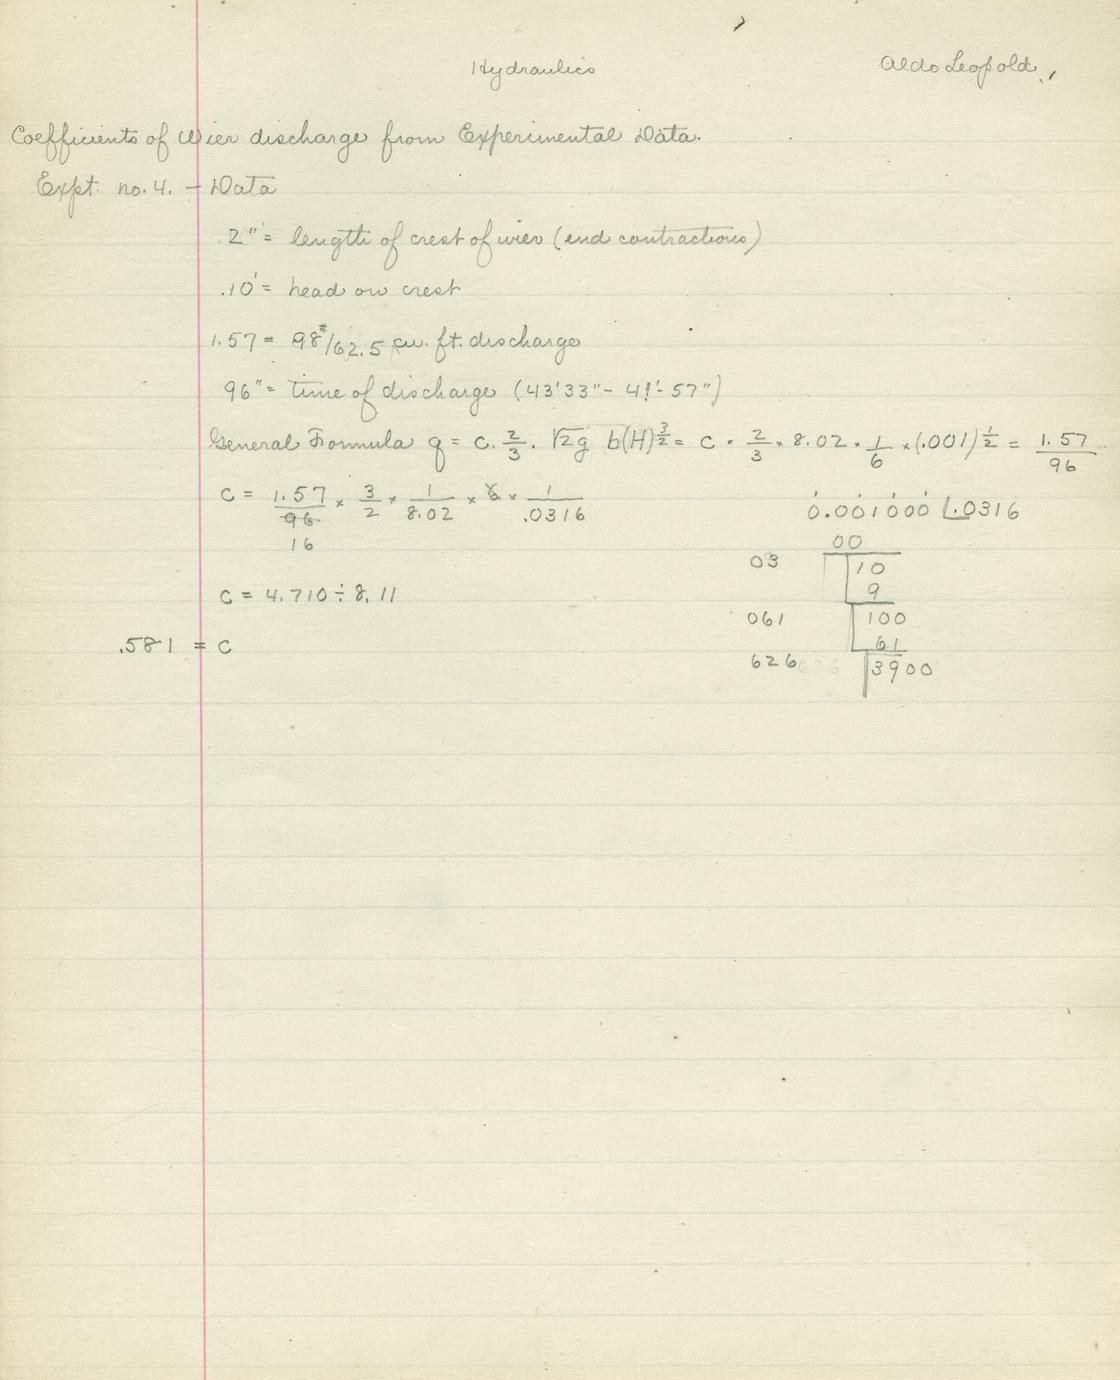 Hydraulics
Aldo Leopold.
Coefficients of Wier discharge from Experimental Data.
Expt. no. 4. - Data
2" = length of crest of wier (end contractions)
.10' = head on crest
1.57 = 98#/62.5 cu. ft. discharge
96" = time of discharge (43'33" - 41'-57")
General Formula q = c. 2/3 . √2g b(H)^3/2 = c × 2/3 × 8.02 × 1/6 × (.001)^1/2 = 1.57/96
c = 1.57/96 × 3/2 × 1/8.02 × 6 × 1/.0316
16
0.001000 |.0316
00
03 10
9
c = 4.710 ÷ 8.11
061 100
61
.581 = c
626 3900